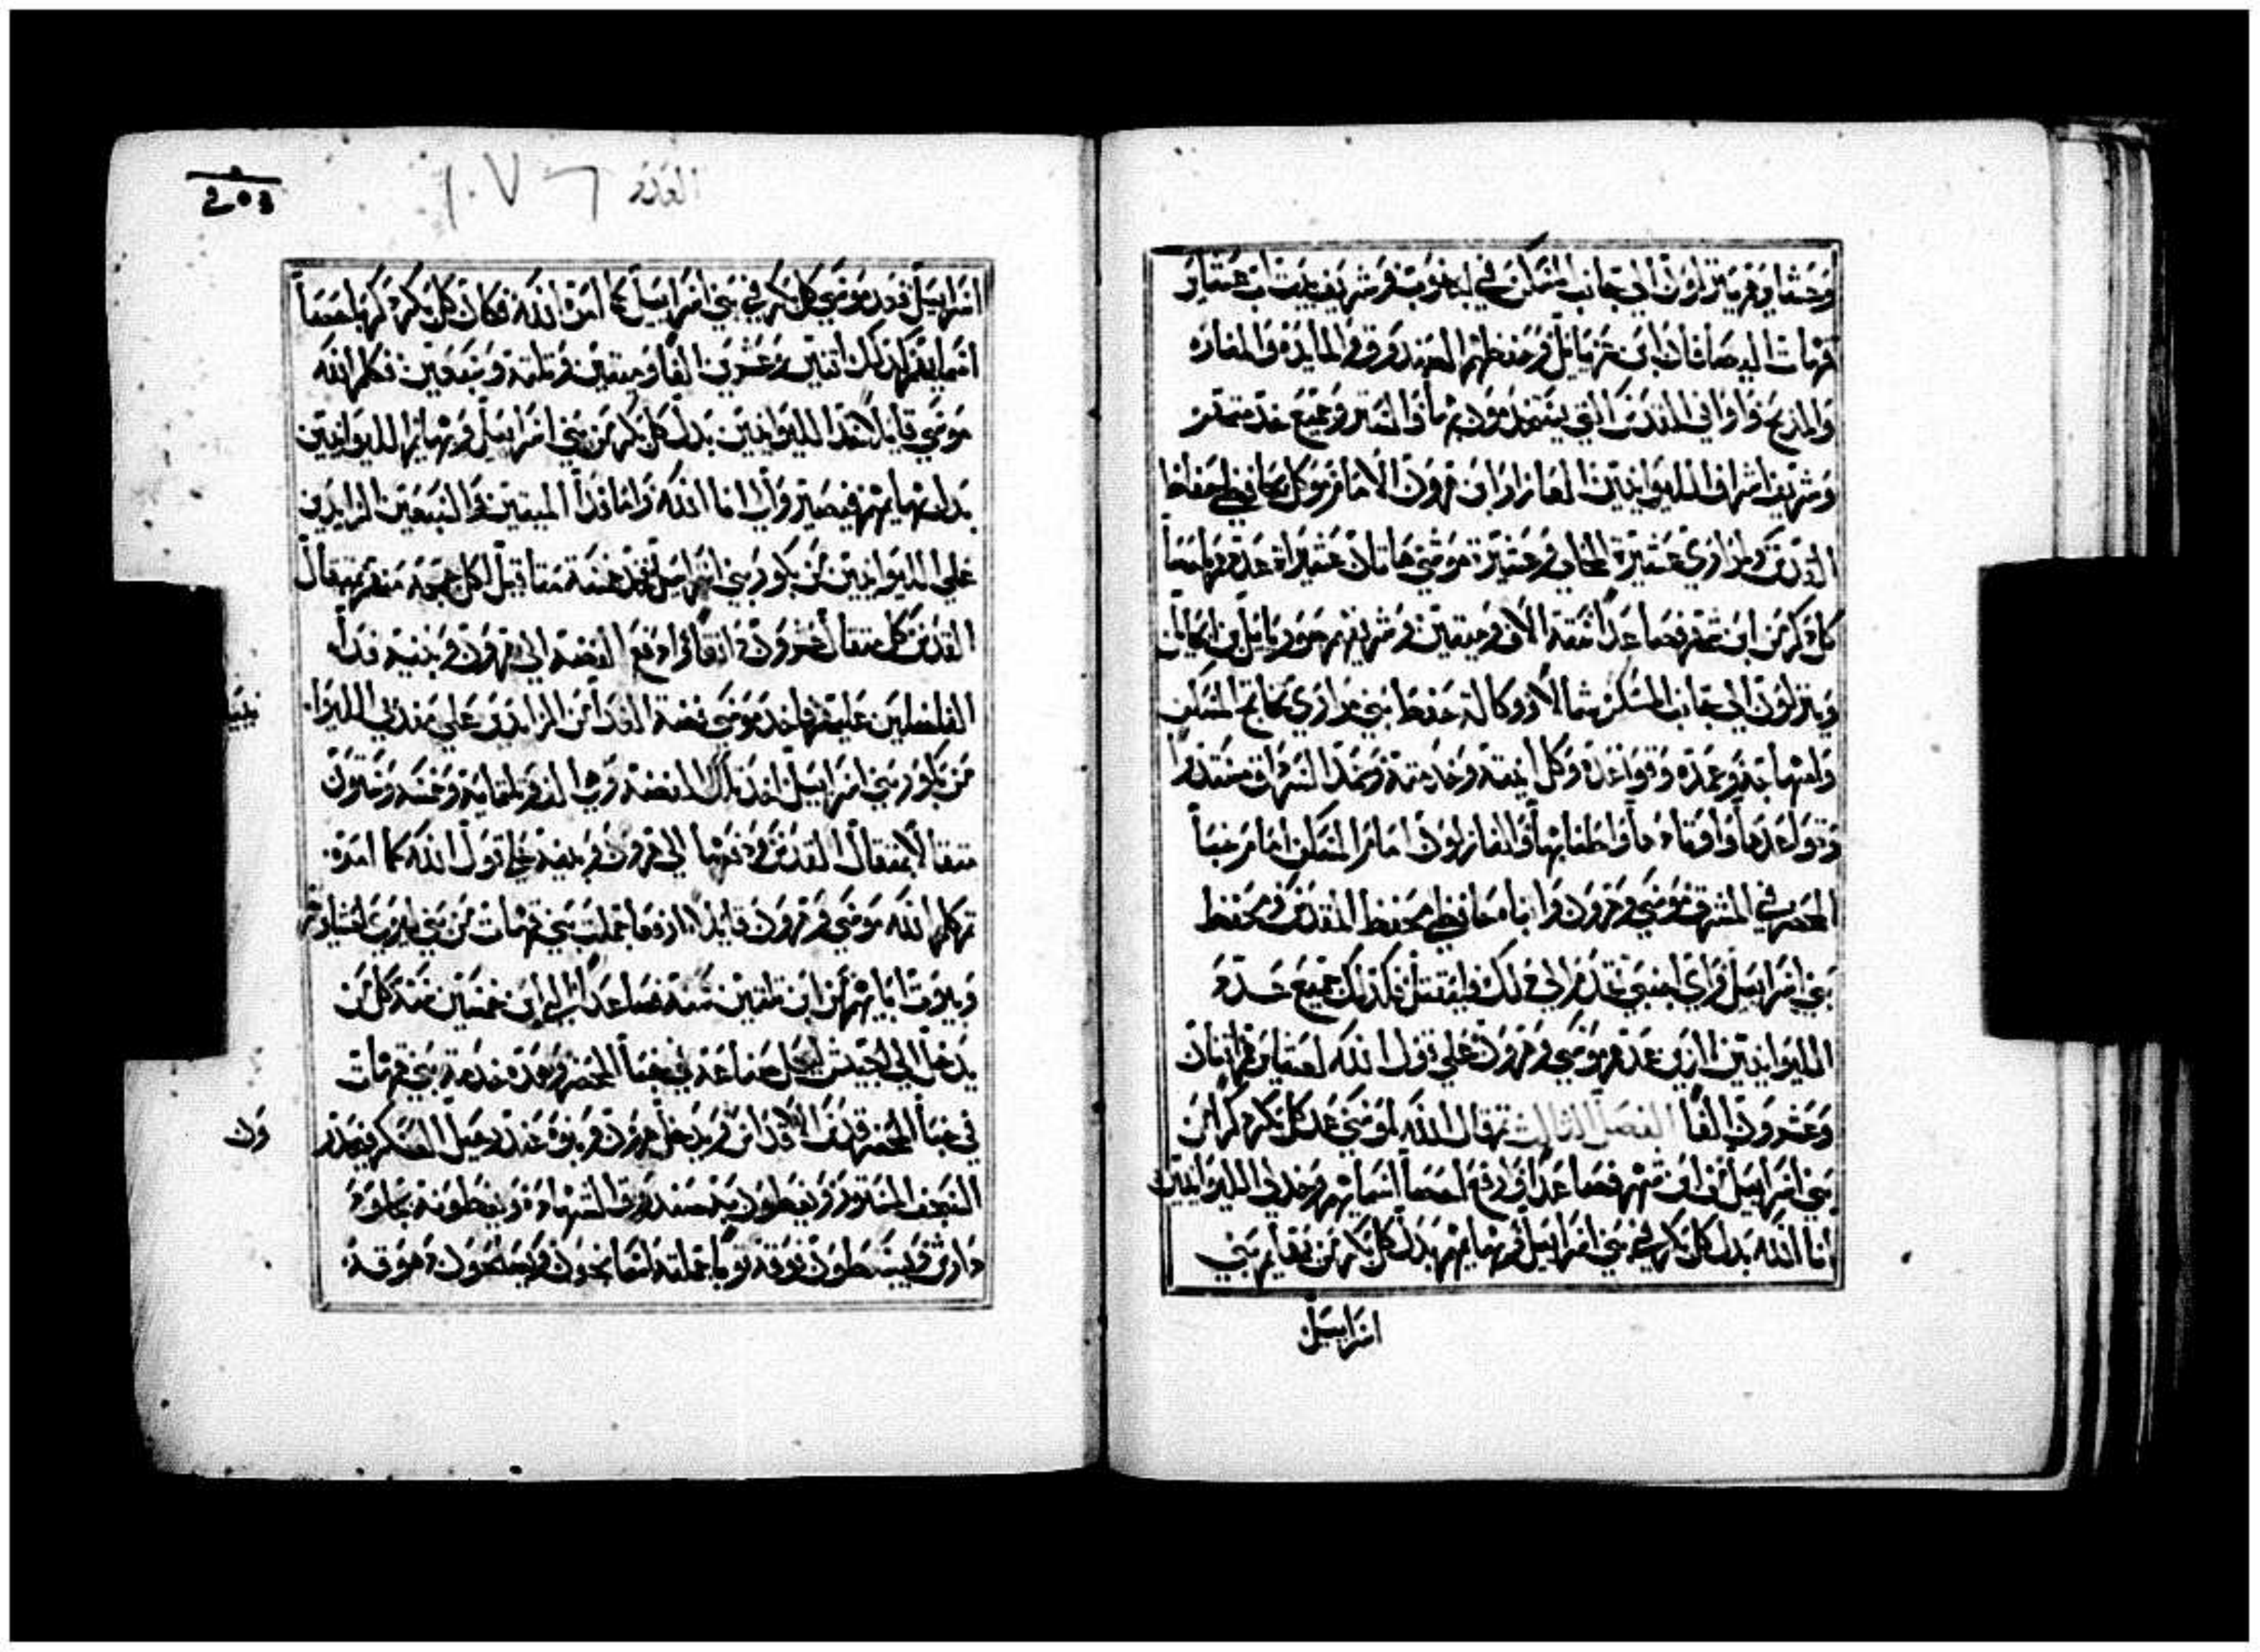 وحشاوهم ينزلون الي جانب المسكن في الجنوب وشريف بيت اب عشاير
قهات اليصافان ابن عزيايل وحفظهم الصندوق والمايدة والمناره
والمذبح واواني القدس التي يستخدمون بها والستر وجميع خدمته
وشريف اشراف الليوانيين العازار ابن هرون الامام وموكل حافظي حفاظ
القدس ولمراري عشيرة المحلي وعشيرة موشي هاتان عشيراته عددهم باحصا
كل ذكر من ابن شهر فصاعدا ستة الاف وميتين وشريفهم صوريايل بن ابيحايل
وينزلون الي جانب المسكن شمالا ووكالة حفظ بني مراري تخاتج المسكن
وامهاجه وعمده وقواعده وكل انيته وخدمته وعمد السرادق مستديرا
وقواعدها واوتادها واطنابها والنازلون امام المسكن امام خبا
المحضر في المشرق موسي وهرون وابناه حافظي محفظ المقدس ومحفظ
بني اسرايل واي اجنبي تقدم الي ذلك فليقتل فكذلك جميع عدد
الليوانيين الذين عدهم موسي وهرون علي قول الله لعشايرهم اثنان
وعشرون الفا الفصل الثالث ثم قال الله لموسي عد كل بكر ذكر من
بني اسرايل من ابن شهر فصاعدا وارفع احصا اسمايهم وخذ لي الليوانيين
انا الله بدل كل بكر في بني اسرايل وبهايمهم بدل كل بكر من بهايم بني
اسرايل
العدد ١٠٧٦
203
اسرايل فعد موسي كل بكر في بني اسرايل كما امره الله فكان كل بكر ذكر باحصا
اسمايهم لذلك اثنين وعشرين الفا وميتين وثلثة وسبعين فكلم الله
موسي قايلا خذ الليوانيين بدل كل بكر من بني اسرايل وبهايم الليوانيين
بدل بهايمهم فيصير والي انا الله واما فدا الميتين والسبعين الزايدين
علي الليوانيين من بكور بني اسرايل فخذ خمسة مثاقيل لكل جمجمة منهم بمثقال
القدس كل مثقال عشرون دانقا وادفع الفضة الي هرون وبنيه فدا
الفاضلين عليهم فاخذ موسي فضة الفدا من الزايدين علي مفدي الليوا
نيين
من بكور بني اسرايل اخذ تلك الفضة وهي الف وثلثماية وخمسة وستون
مثقالا بمثقال القدس ودفعها الي هرون وبنيه علي قول الله كما امره
ثم كلم الله موسي وهرون قايلا ارفعا جملة بني قهات من بني ليوي عشايرهم
وبيوت ابايهم من ابن ثلثين سنة فصاعدا الي ابن خمسين سنة كل من
يدخل الي الجيش ليعمل صناعة في خبا المحضر وهذه خدمة بني قهات
في خبا المحضر قدس الاقداس ويدخل هرون وبنوه عند رحيل العسكر فيحدر
ون
السجف المستور ويغطون به صندوق الشهادة ويغطونه بجلود
دارش ويبسطون فوقه ثوبا جملته اسمانجون ويصلحون دهوقه